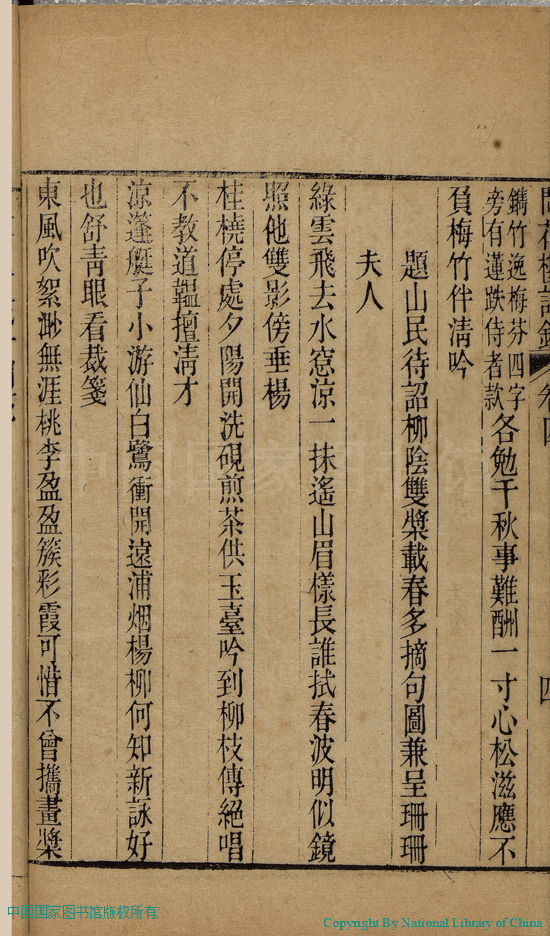 鐫竹逸梅芬四字
旁有蓮趺侍者款
各勉千秋事難酬一寸心松滋應不
負梅竹伴清吟
題山民待詔柳陰雙槳載春多摘句圖兼呈珊珊
夫人
綠雲飛去水窓涼一抹遙山眉樣長誰拭春波明似鏡
照他雙影傍垂楊
桂橈停處夕陽開洗硯煎茶供玉臺吟到柳枝傳絕唱
不教道韞擅清才
涼篷艇子小游仙白鷺衝開遠浦烟楊柳何知新詠好
也舒靑眼看裁箋
東風吹絮渺無涯桃李盈盈簇彩霞可惜不曾攜畫槳
中国国家图书馆版权所有
Copyright By National Library of China